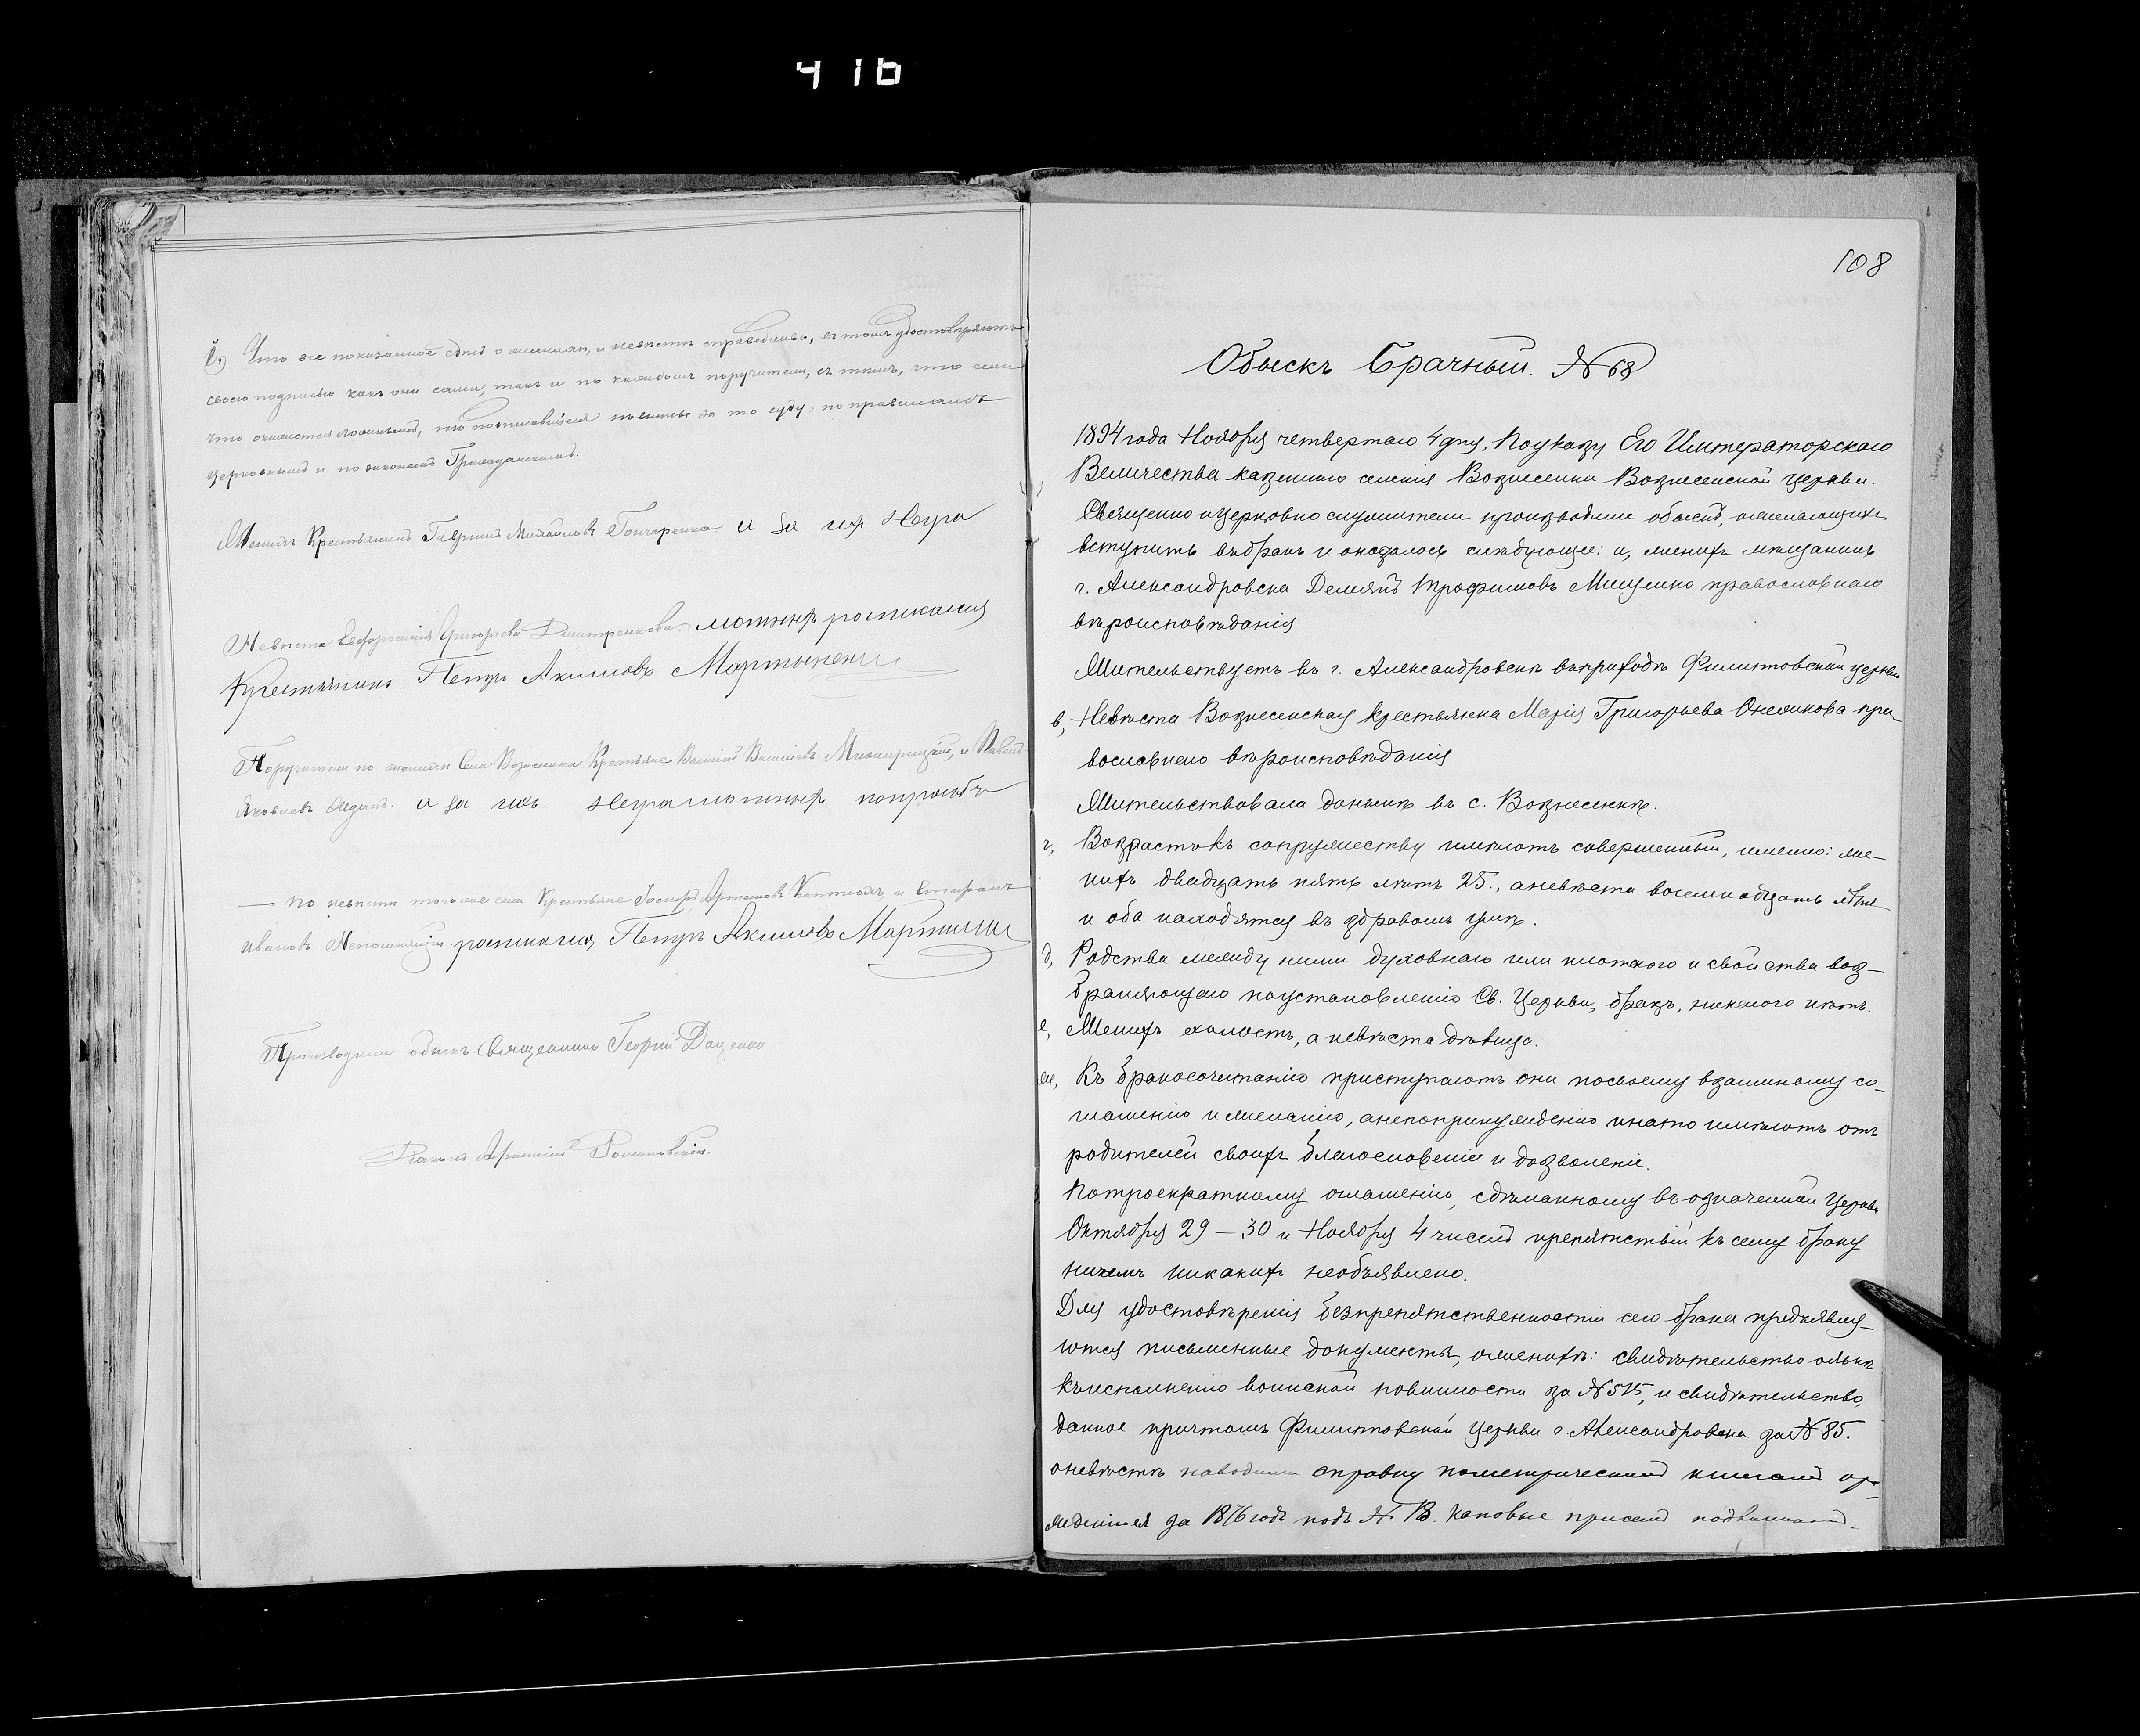 416
й.) Что все показанное здѣсь о женихѣ и невѣстѣ справедливо, въ томъ удостовѣряютъ
своею подписью какъ они сами, такъ и по каждомъ поручители, съ тѣмъ, что если
что окажется ложнымъ, то подписавшіеся повинны за то суду по правиламъ
церковнымъ и по законамъ Гражданскимъ.
Женихъ Крестьянинъ Гавріилъ Михайловъ Гончаренко и за их Негра
Невѣста Евфросинія Григорьева Дмитренкова мотных роспикался
Крестьянин Петръ Акимовъ Мартыненко
Поручители по женихѣ Села Вознесенки Крестьяне Василій Васильевъ и Павелъ
Яковлевъ и за них Неграмотных попрозбѣ
— по невѣстѣ того же села Крестьяне Артемовъ и Стефанъ
Ивановъ Непомнящій роспикался Петръ Акимовъ Мартыненко
Производили обыскъ Священникъ Георгій Даценко
Діаконъ Афанасій Романовскій.
108
Обыскъ Брачный. № 68
1894 года Ноября четвертаго 4 дня, По указу Его Императорскаго
Величества казеннаго селенія Вознесенки Вознесенской церкви.
Священно и церковно служители производили обыскъ, о желающихъ
вступить въ бракъ и оказалось слѣдующее: а, женихъ мѣщанинъ
г. Александровска Деміянъ Трофимовъ Мищенко православнаго
вѣроисповѣданія
Жительствуетъ въ г. Александровскѣ въ приходѣ Филиповской церкви
в, Невѣста Вознесенская крестьянка Марія Григорьева Онежкова пра-
вославнаго вѣроисповѣданія
Жительствовала донынѣ въ с. Вознесенкѣ.
г, Возрастъ къ сопружеству имѣютъ совершенный, именно: же-
нихъ двадцать пять лѣтъ 25., а невѣста восемнадцать лѣтъ
и оба находятся въ здравомъ умѣ.
д, Родства между ними духовнаго или плотского и свойства воз-
браняющаго по установленію Св. Церкви, бракъ, никакого нѣтъ.
е, Женихъ холостъ, а невѣста дѣвица.
ж, Къ бракосочетанію приступаютъ они по своему взаимному со-
глашенію и желанію, а не по принужденію и на то имѣютъ отъ
родителей своихъ благословеніе и дозволеніе.
По троекратному оглашенію, сдѣланному въ означенной Церкви
Октября 29 — 30 и Ноября 4 чиселъ препятствій къ сему браку
никемъ никакихъ не объявлено.
Для удостовѣренія безпрепятственности сего брака предъявля-
ются письменные документы, о женихѣ: свидѣтельство о явкѣ
къ исполненію воинской повинности за № 515, и свидѣтельство,
данное причтомъ Филиповской Церкви г. Александровска за № 85.
о невѣстѣ наводили справку по метрическимъ книгамъ
за 1876 годъ подъ № 13. каковые присемъ